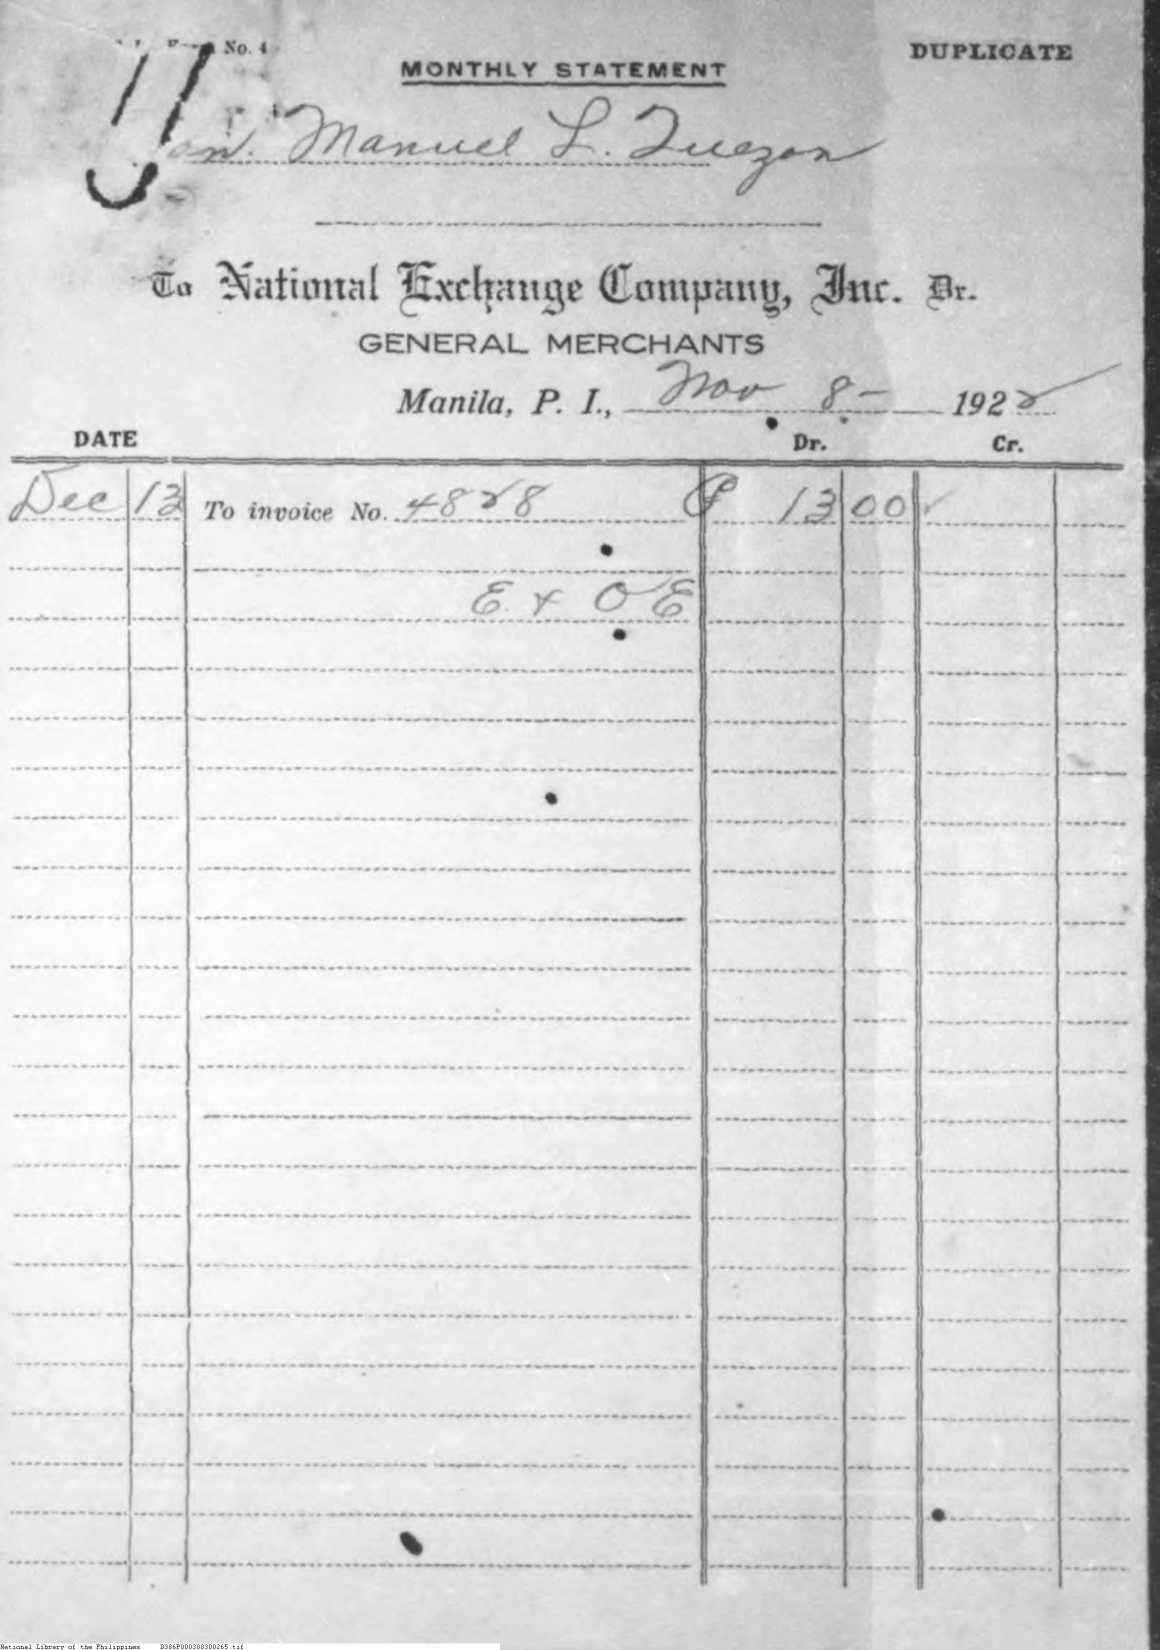 No. 4
DUPLICATE
MONTHLY STATEMENT
Hon. Manuel L. Quezon
To National Exchange Company, Inc. Dr.
GENERAL MERCHANTS
Manila, P. I., Nov 8- 1922
DATE Dr. Cr.
Dec 13 To invoice No. 4828 ₱ 13 00
E. & O E
National Library of the Philippines D386P000308300265.tif